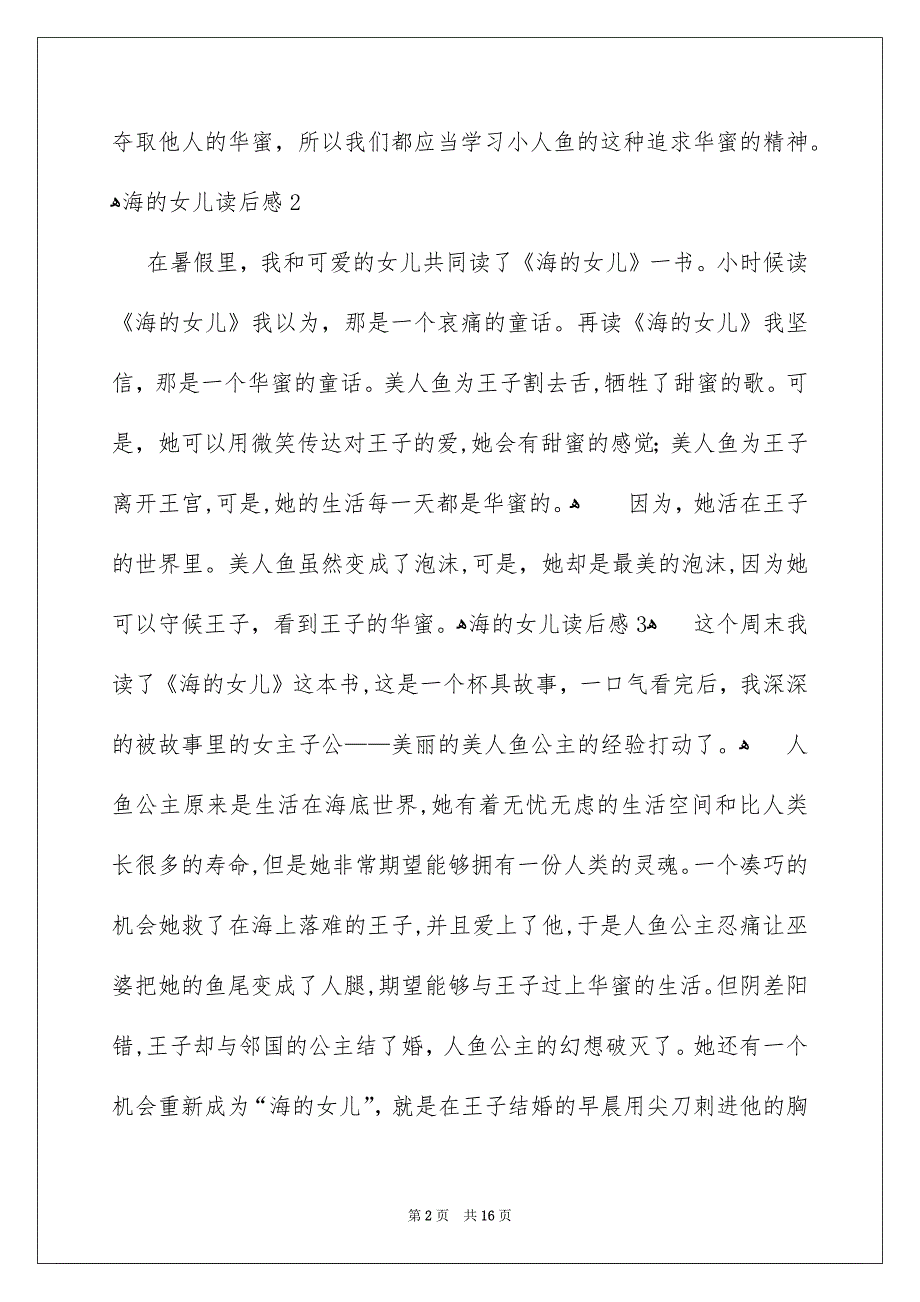 夺取他人的华蜜，所以我们都应当学习小人鱼的这种追求华蜜的精神。
ﻬ海的女儿读后感2
在暑假里，我和可爱的女儿共同读了《海的女儿》一书。小时候读
《海的女儿》我以为，那是一个哀痛的童话。再读《海的女儿》我坚
信，那是一个华蜜的童话。美人鱼为王子割去舌,牺牲了甜蜜的歌。可
是，她可以用微笑传达对王子的爱,她会有甜蜜的感觉；美人鱼为王子
离开王宫,可是,她的生活每一天都是华蜜的。ﻬ 因为，她活在王子
的世界里。美人鱼虽然变成了泡沫,可是，她却是最美的泡沫,因为她
可以守候王子，看到王子的华蜜。ﻬ海的女儿读后感3ﻬ 这个周末我
读了《海的女儿》这本书,这是一个杯具故事，一口气看完后，我深深
的被故事里的女主子公——美丽的美人鱼公主的经验打动了。ﻬ 人
鱼公主原来是生活在海底世界,她有着无忧无虑的生活空间和比人类
长很多的寿命,但是她非常期望能够拥有一份人类的灵魂。一个凑巧的
机会她救了在海上落难的王子,并且爱上了他,于是人鱼公主忍痛让巫
婆把她的鱼尾变成了人腿,期望能够与王子过上华蜜的生活。但阴差阳
错,王子却与邻国的公主结了婚，人鱼公主的幻想破灭了。她还有一个
机会重新成为“海的女儿”，就是在王子结婚的早晨用尖刀刺进他的胸
第 2 页 共 16 页